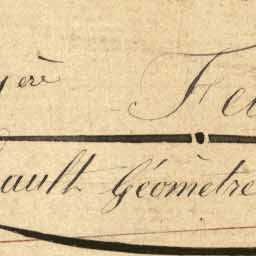 ère Fe
ault Géomètre